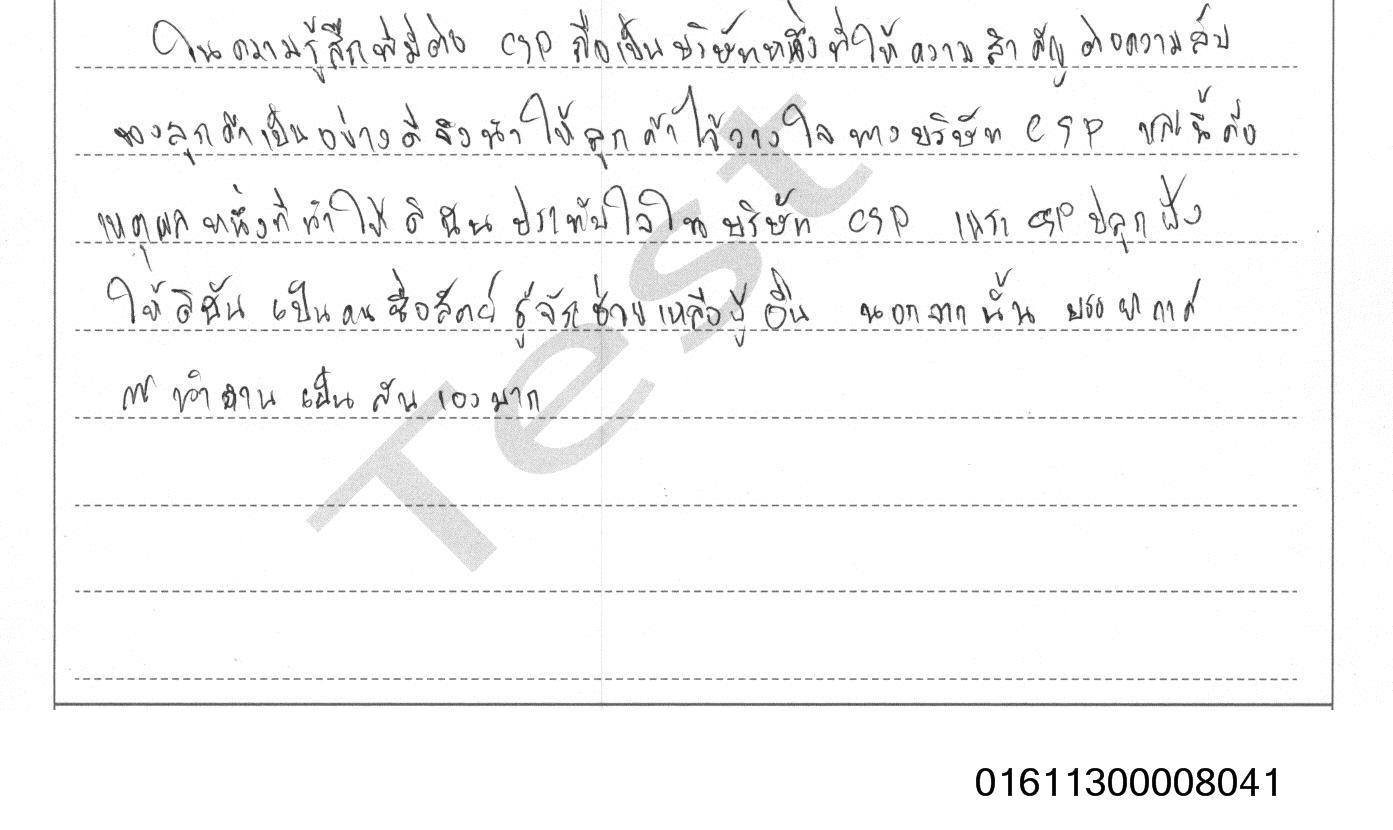 ในความรู้สึกที่มีต่อ CSP ถือเป็นบริษัทหนึ่งที่ให้ความสำคัญต่อความลับ
ของลูกค้าเป็นอย่างดี จึงทำให้ลูกค้าไว้วางใจ ทางบริษัท CSP นี้คือ
เหตุผลหนึ่งที่ทำให้ดิฉันประทับใจในบริษัท CSP เพราะ CSP ปลูกฝัง
ให้ดิฉัน เป็นคนซื่อสัตย์ รู้จักช่วยเหลือผู้อื่น นอกจากนั้น บรรยากาศ
ทำงาน เป็นกันเองมาก
Test
01611300008041